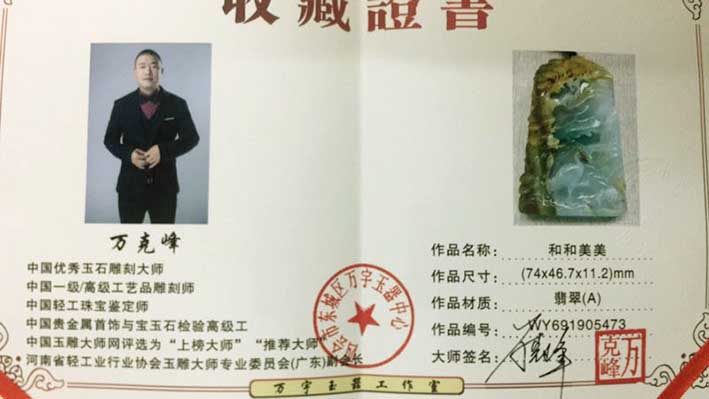 收藏證書
万克峰
中国优秀玉石雕刻大师
中国一级/高级工艺品雕刻师
中国轻工珠宝鉴定师
中国贵金属首饰与宝玉石检验高级工
中国玉雕大师网评选为“上榜大师”“推荐大师”
河南省轻工业行业协会玉雕大师专业委员会(广东)副会长
市东城区万字玉器中心
作品名称: 和和美美
作品尺寸: (74x46.7x11.2)mm
作品材质: 翡翠(A)
作品编号: WY691905473
大师签名:
万克峰
万字玉器工作室